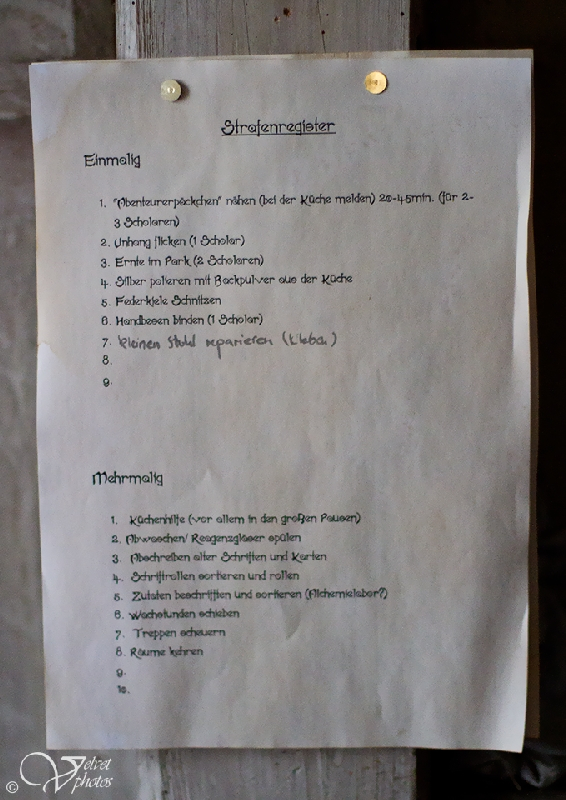 Strafenregister
Einmalig
1. "Abenteurerpäckchen" nähen (bei der Küche melden) 20-45min. (für 2-
3 Scholaren)
2. Umhang flicken (1 Scholar)
3. Ernte im Park (2 Scholaren)
4. Silber polieren mit Backpulver aus der Küche
5. Federkiele Schnitzen
6. Handbesen binden (1 Scholar)
7. kleinen Stuhl reparieren
8.
9.
Mehrmalig
1. Küchenhilfe (vor allem in den großen Pausen)
2. Abwaschen/ Reagenzgläser spülen
3. Abschreiben alter Schriften und Karten
4. Schriftrollen sortieren und rollen
5. Zutaten beschriften und sortieren (Alchemielabor?)
6. Wachstunden schieben
7. Treppen scheuern
8. Räume kehren
9.
10.
© Velvet
photos